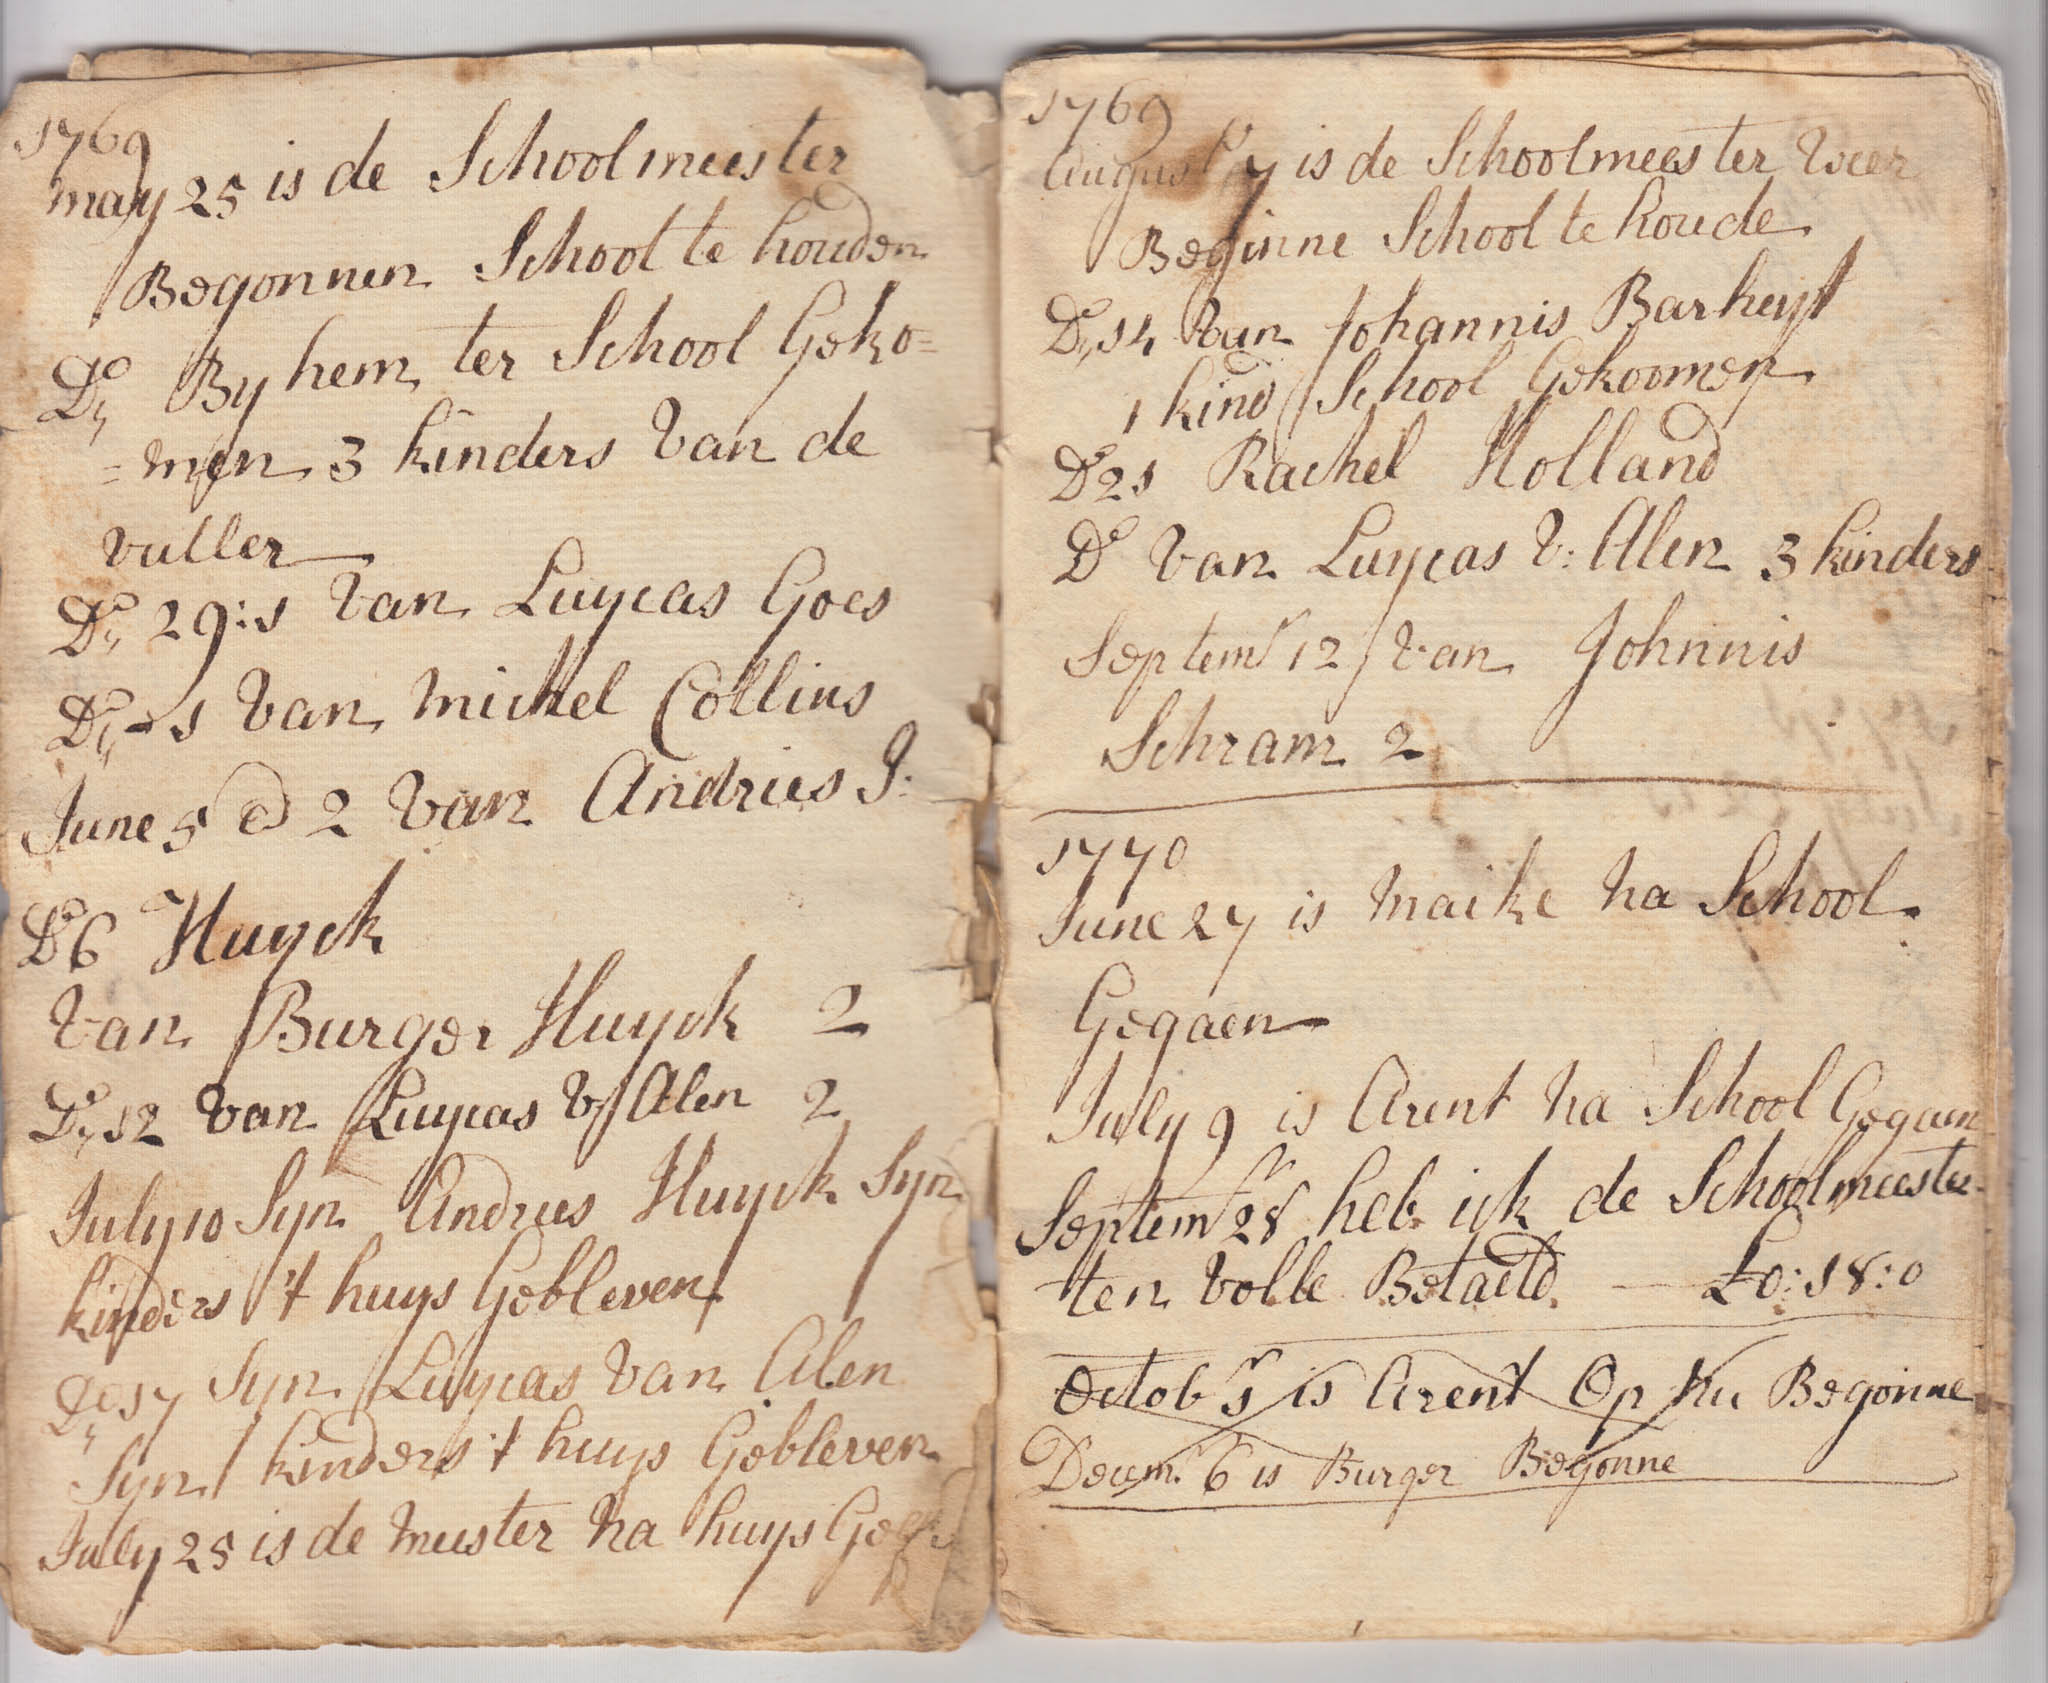 1769
may 25 is de Schoolmeester
Begonnen School te houden
Do,, By hem ter School Geko=
=men 3 kinders Van de
vuller
Do,, 29:1 Van Luycas Goes
Do,,-1 Van michel Collins
June 5 @ 2 Van Andries J:
Do6 Huyck
Van Burger Huyck 2
Do,,12 Van Luycas V Alen 2
July 10 Syn Andries Huyck Syn
kinders 't huys Gebleven
Do,,17 Syn Luycas Van Alen
Syn kinders 't huys Gebleven
July 25 is de meester na huys
1769
August 7 is de Schoolmeester Weer
Beginne School te houde
Do,,14 Van Johannis Barheyt
1 kind School Gekoomen
Do21 Rachel Holland
Do Van Luycas V: Alen 3 kinders
Septemr 12 Van Johnnis
Schram 2
1770
June 27 is maike na School
Gegaen
July 9 is Arent na School Gegaen
Septemr 28 heb ick de Schoolmeester
ten Volle Betaeld — £0:18:0
Octobr 1 is Arent Op nu Begonne
Decemr 6 is Burger Begonne